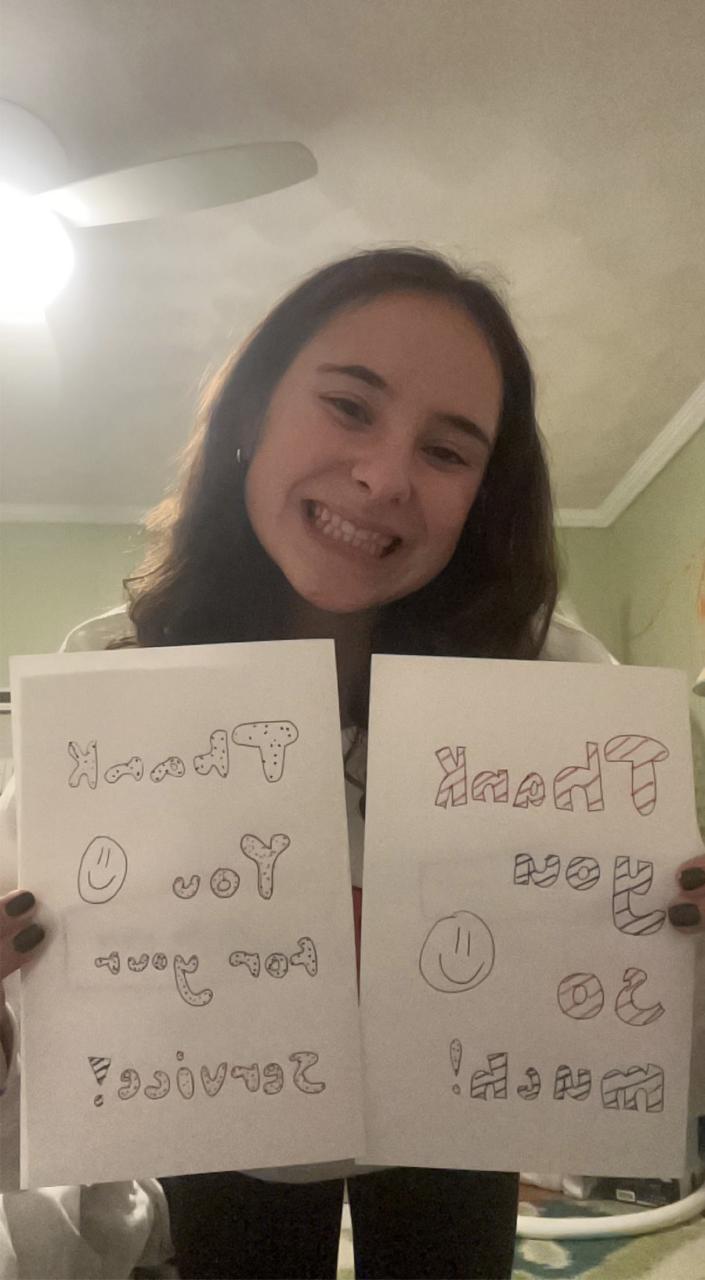 Thank
You
for your
Service!
Thank
you
So
much!